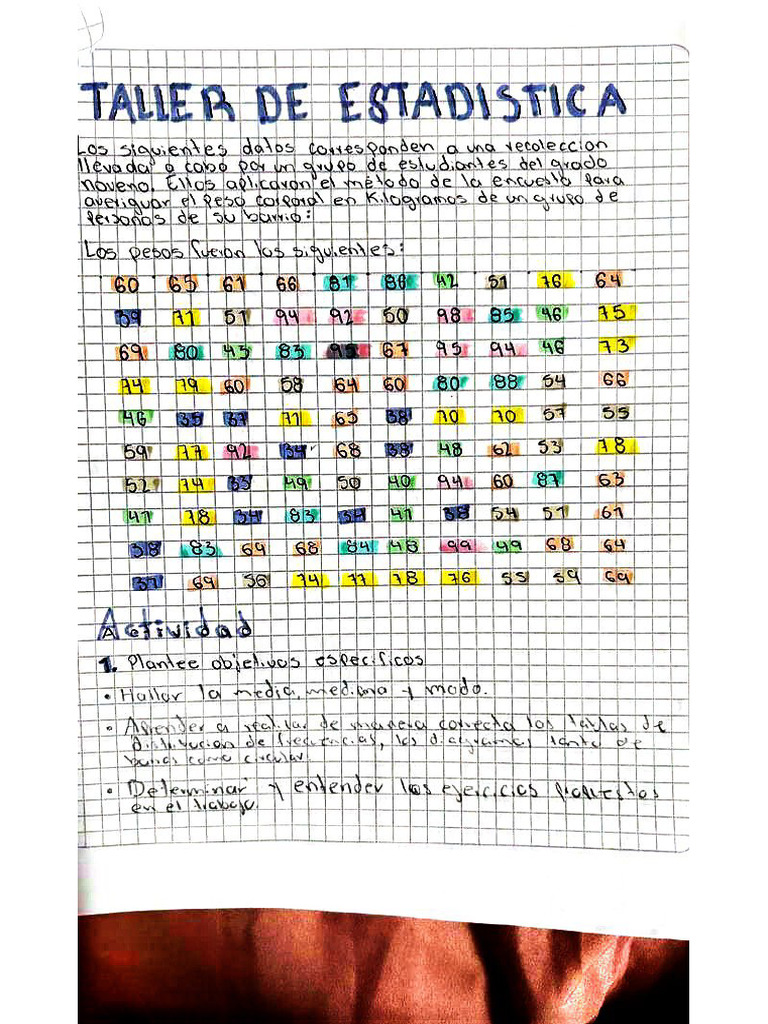 TALLER DE ESTADISTICA
Los siguientes datos corresponden a una recoleccion
llevada a cabo por un grupo de estudiantes del grado
noveno. Ellos aplicaron el método de la encuesta para
averiguar el peso corporal en Kilogramos de un grupo de
personas de su barrio:
Los pesos fueron los siguientes:
60 65 61 66 81 86 42 51 76 64
39 71 51 94 92 50 98 85 46 75
69 80 43 83 95 67 95 94 46 73
74 79 60 58 64 60 80 88 54 66
46 35 37 71 65 38 70 70 57 55
59 77 92 34 68 38 48 62 53 78
52 74 33 49 50 40 94 60 87 63
41 78 34 83 34 41 38 54 51 61
38 83 69 68 84 48 99 49 68 64
37 69 56 74 77 78 76 55 59 69
Actividad
1. Plantee objetivos especificos
• Hallar la media, mediana y moda.
• Aprender a realizar de manera correcta las tablas de
distribucion de frecuencias, los diagramas tanto de
barras como circular.
• Determinar y entender los ejercicios propuestos
en el trabajo.